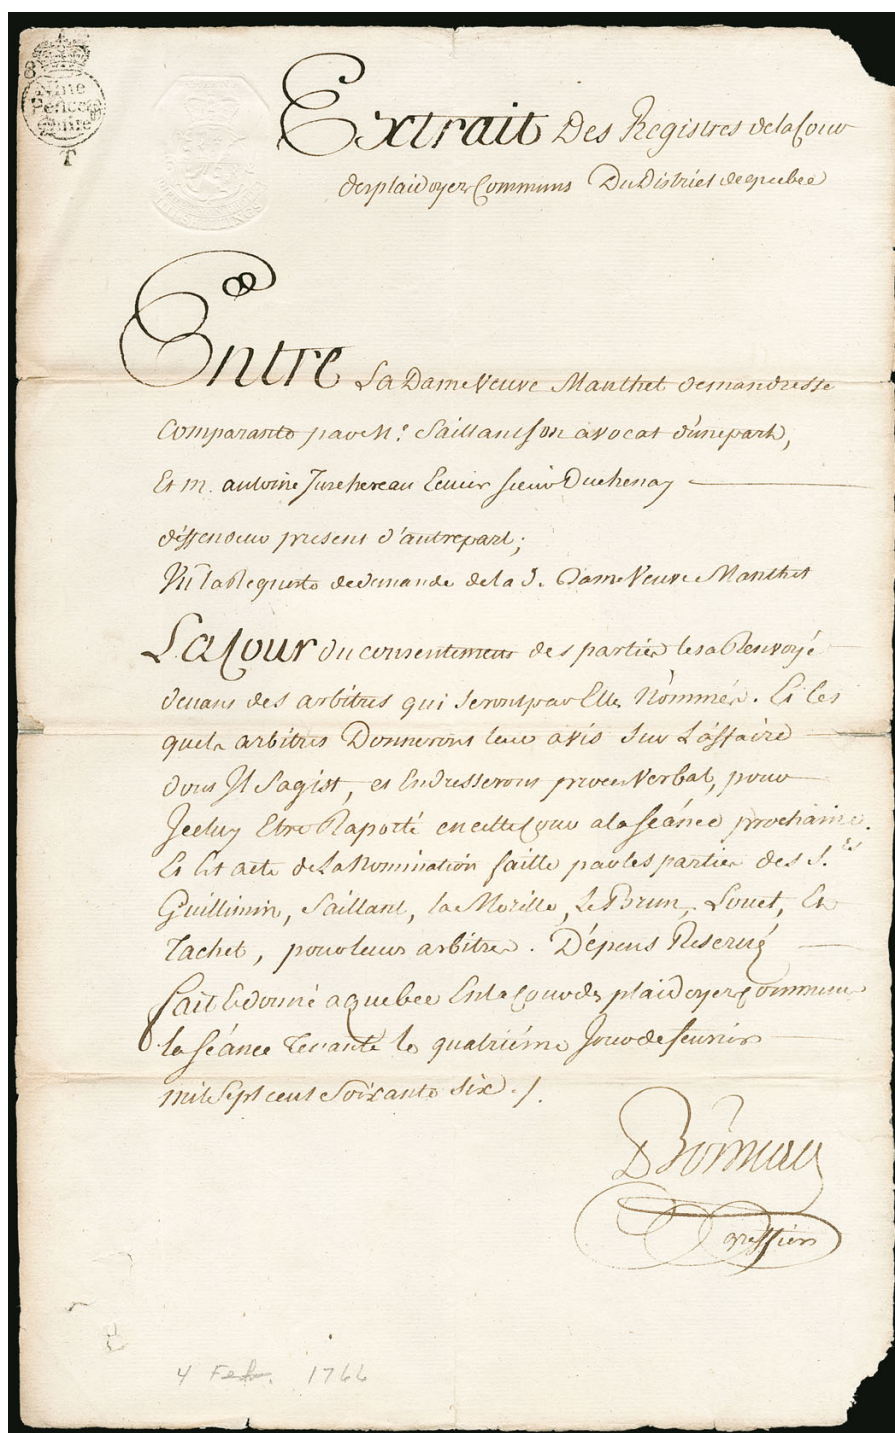 Nine
Pence
Quire
T
SHILLINGS
Extrait Des Registres de la Cour
des plaidoyers Communs Du District de quebec
Entre La Dame Veuve Manthet demandresse
Comparante par M.e Saillant son avocat d'une part,
Et m. antoine Juchereau Ecuier sieur Duchenay
déffendeur present d'autre part;
Vû la Requeste de demande de la d. Dame Veuve Manthet
La Cour du consentement des parties les a Renvoyé
devant des arbitres qui seront par Elles Nommés. Et les
quels arbitres Donneront leur avis sur L'affaire
dont Il Sagist, et En dresseront procés Verbal, pour
Jceluy Etre Raporté en cette Cour a la séance prochaine.
Et lit acte de La Nomination faitte par les parties des S.rs
Guillimin, Saillant, la Morille, Le Brun, Louet, Et
Tachet, pour leurs arbitres. Dépens Reservé
fait Et donné a quebec En la Cour des plaidoyers Communs
la séance Tenante le quatriéme Jour de fevrier
mil Sept cent Soixante Six ./.
Boisseau
greffier
4 Feb. 1766